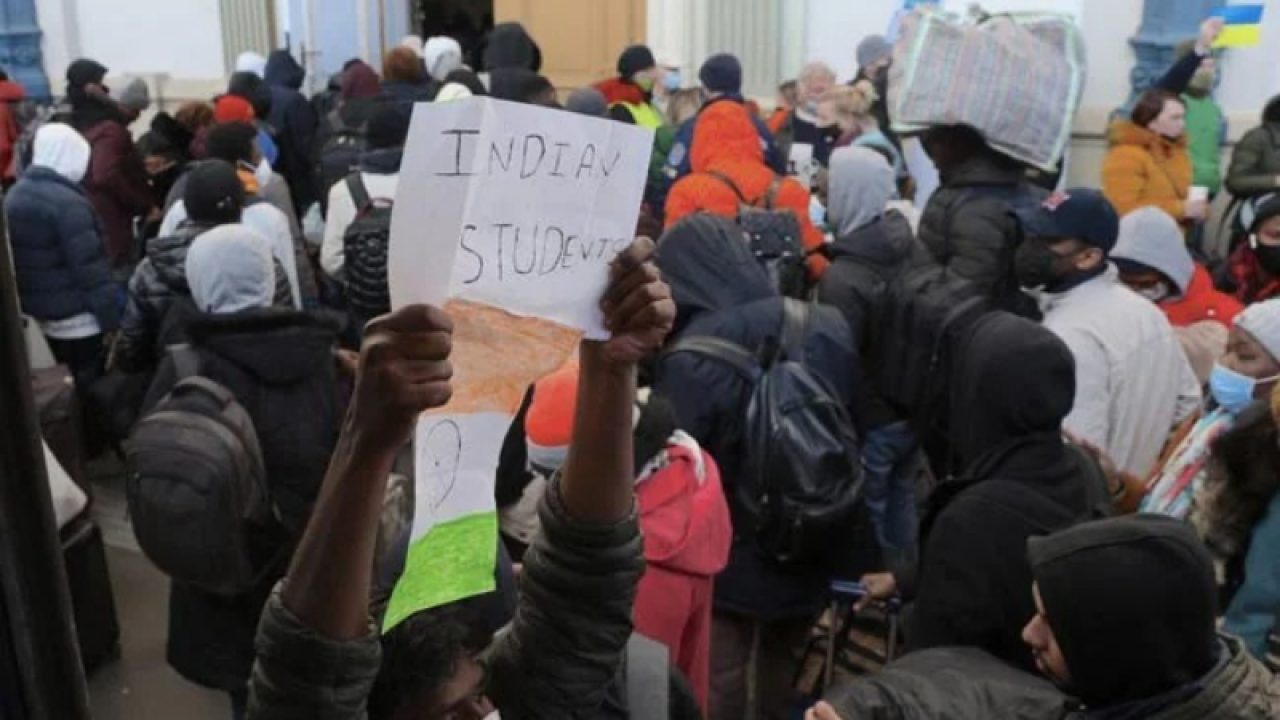 INDIAN
STUDENTS